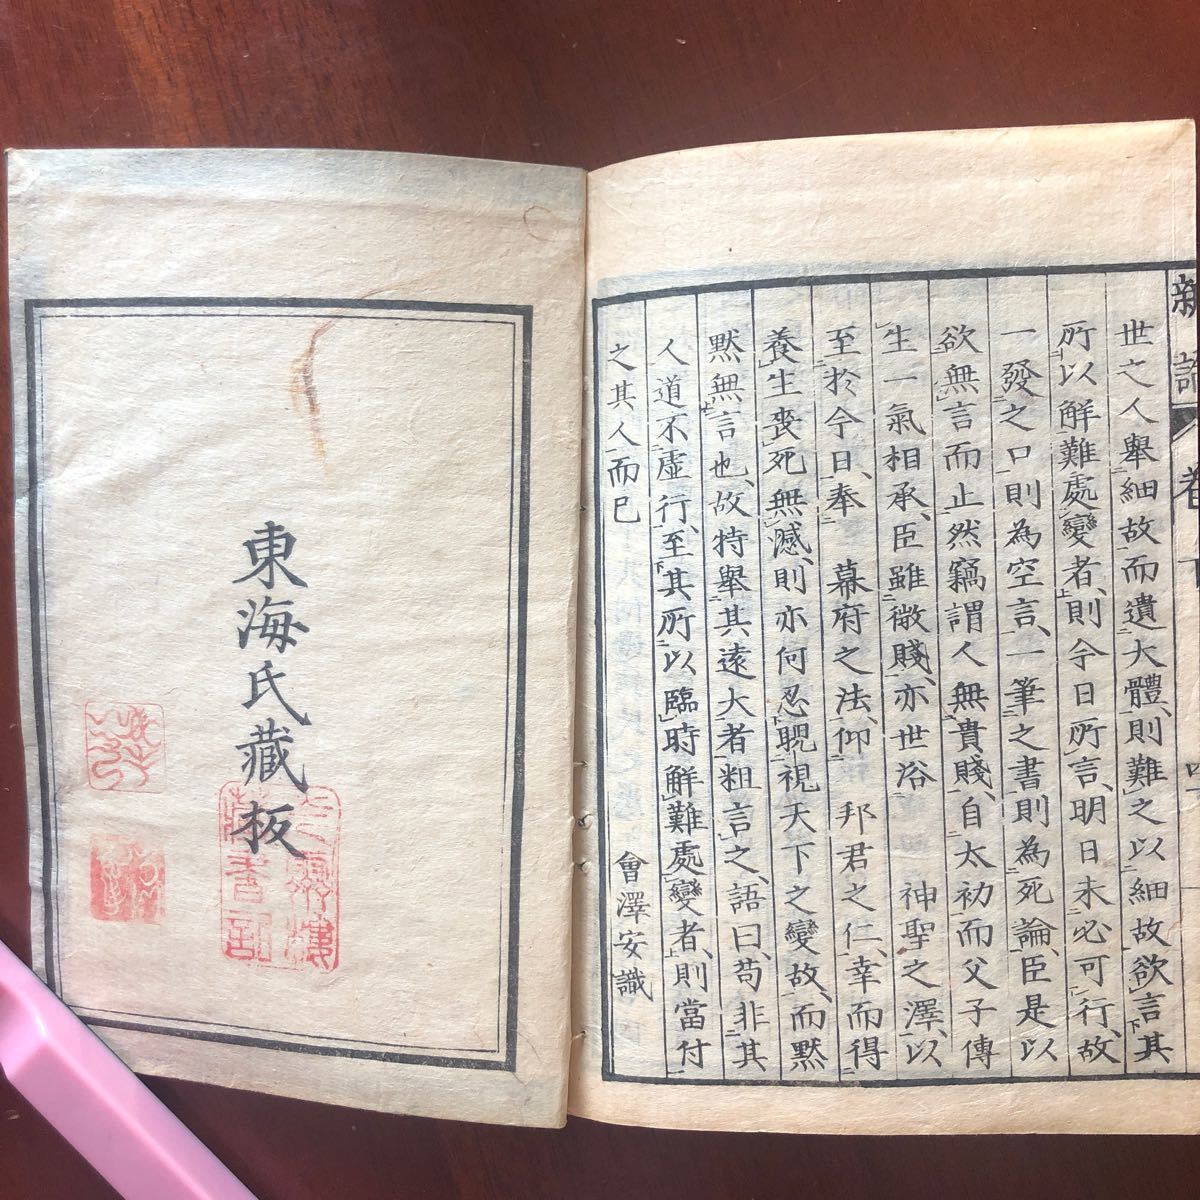 新論 卷下
世之人舉細故而遺大體、則難之以細故、欲言其
所以解難處變者、則今日所言、明日未必可行、故
一發之口則為空言、一筆之書則為死論、臣是以
欲無言而止然竊謂人無貴賤、自太初而父子傳
生一氣相承、臣雖微賤、亦世浴 神聖之澤、以
至於今日、奉 幕府之法、仰 邦君之仁、幸而得
養生喪死無憾、則亦何忍覗視天下之變故、而默
默無言也、故特舉其遠大者粗言之、語曰、苟非其
人道不虛行、至其所以臨時解難處變者、則當付
之其人而已 會澤安識
東海氏藏板